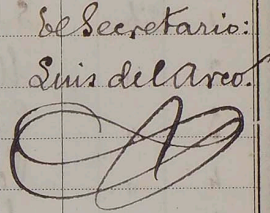 El Secretario:
Luis del Arco.